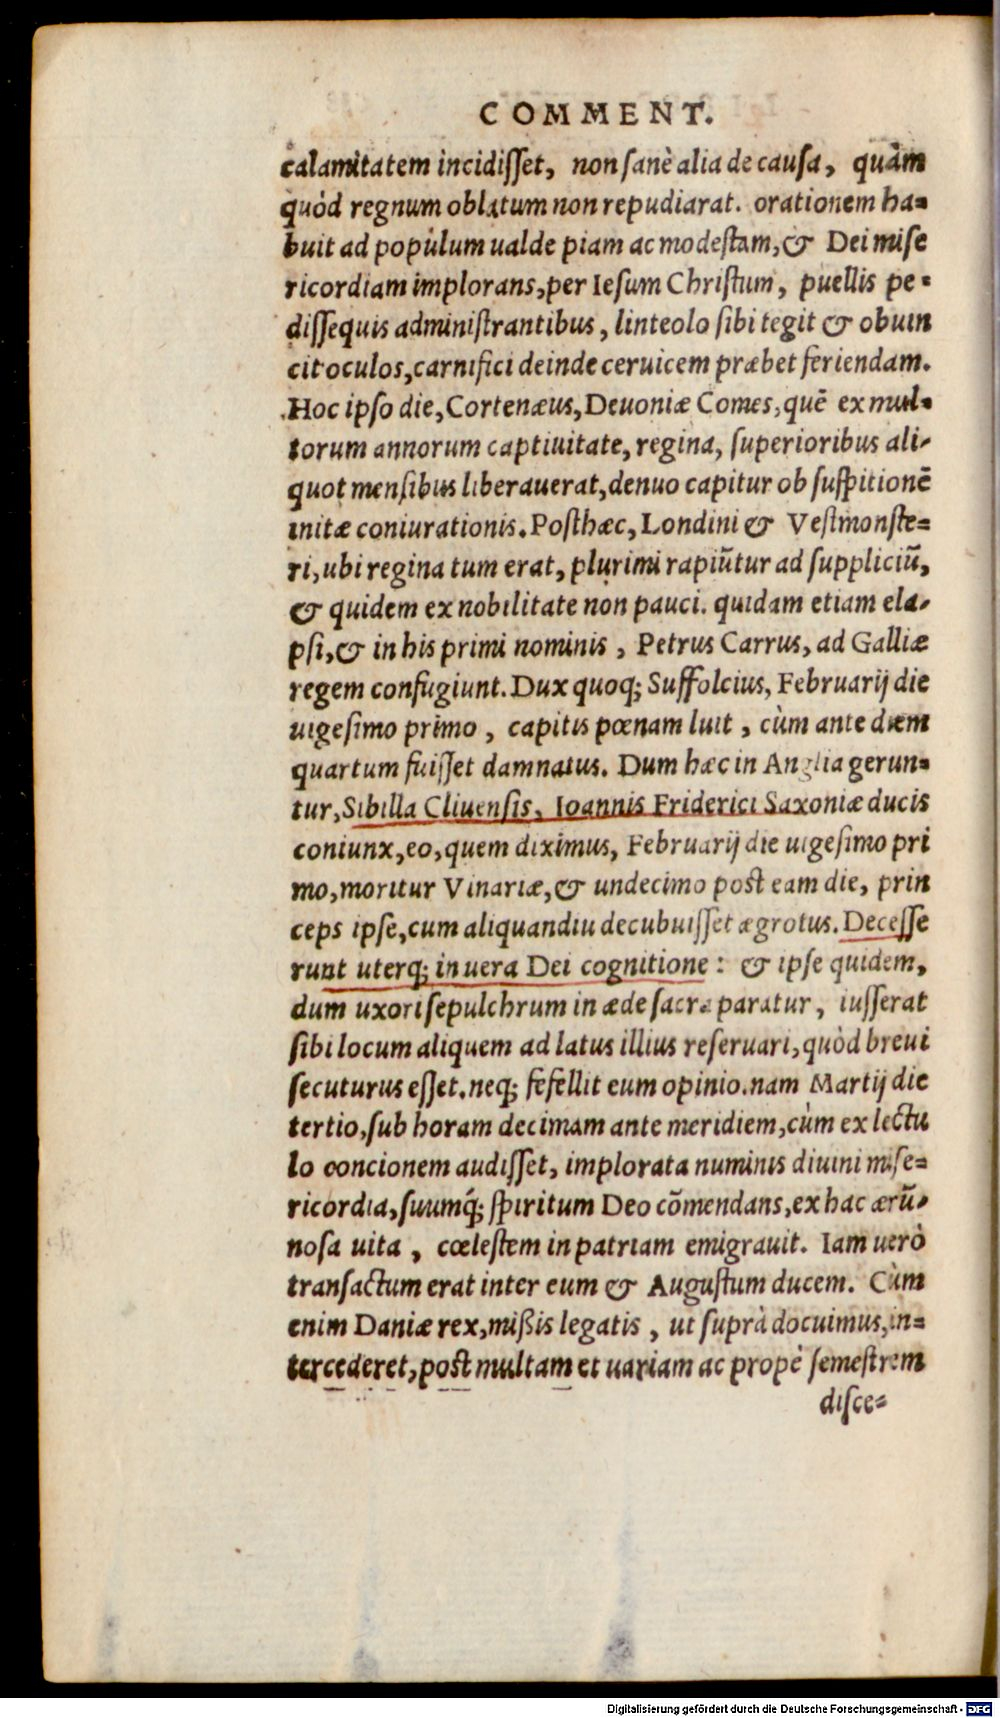 COMMENT.
calamitatem incidisset, non sanè alia de causa, quàm
quòd regnum oblatum non repudiarat. orationem ha-
buit ad populum ualde piam ac modestam, & Dei mise
ricordiam implorans, per Iesum Christum, puellis pe-
dissequis administrantibus, linteolo sibi tegit & obuin
cit oculos, carnifici deinde ceruicem præbet feriendam.
Hoc ipso die, Cortenæus, Deuoniæ Comes, quē ex mul-
torum annorum captiuitate, regina, superioribus ali-
quot mensibus liberauerat, denuo capitur ob suspitionē
initæ coniurationis. Posthæc, Londini & Vestmonste-
ri, ubi regina tum erat, plurimi rapiūtur ad suppliciū,
& quidem ex nobilitate non pauci. quidam etiam ela-
psi, & in his primi nominis, Petrus Carrus, ad Galliæ
regem confugiunt. Dux quoq; Suffolcius, Februarij die
uigesimo primo, capitis pœnam luit, cùm ante diem
quartum fuisset damnatus. Dum hæc in Anglia gerun-
tur, Sibilla Cliuensis, Ioannis Friderici Saxoniæ ducis
coniunx, eo, quem diximus, Februarij die uigesimo pri
mo, moritur Vinariæ, & undecimo post eam die, prin
ceps ipse, cum aliquandiu decubuisset ægrotus. Decesse
runt uterq; in uera Dei cognitione: & ipse quidem,
dum uxori sepulchrum in æde sacra paratur, iusserat
sibi locum aliquem ad latus illius reseruari, quòd breui
secuturus esset. neq; fefellit eum opinio. nam Martij die
tertio, sub horam decimam ante meridiem, cùm ex lectu
lo concionem audisset, implorata numinis diuini mise-
ricordia, suumq́; spiritum Deo cōmendans, ex hac ærū-
nosa uita, cœlestem in patriam emigrauit. Iam uerò
transactum erat inter eum & Augustum ducem. Cùm
enim Daniæ rex, mißis legatis, ut suprà docuimus, in-
tercederet, post multam et uariam ac propè semestrem
disce-
Digitalisierung gefördert durch die Deutsche Forschungsgemeinschaft - DFG